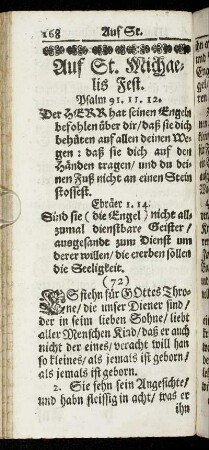 168 Auf St.
Auf St. Michae-
lis Fest.
Psalm 91. 11. 12.
Der HERR hat seinen Engeln
befohlen über dir/ daß sie dich
behüten auf allen deinen We-
gen: daß sie dich auf den
Händen tragen/ und du dei-
nen Fuß nicht an einen Stein
stossest.
Ebräer 1. 14.
Sind sie (die Engel) nicht all-
zumal dienstbare Geister/
ausgesandt zum Dienst um
derer willen/ die ererben sollen
die Seeligkeit.
(72)
ES stehn für GOttes Thro-
ne/ die unser Diener sind/
der in seim lieben Sohne/ liebt
aller Menschen Kind/ daß er auch
nicht der eines/ veracht will han
so kleines/ als jemals ist geborn/
als jemals ist geborn.
2. Sie sehn sein Angesichte/
und habn fleissig in acht/ was er
ihn